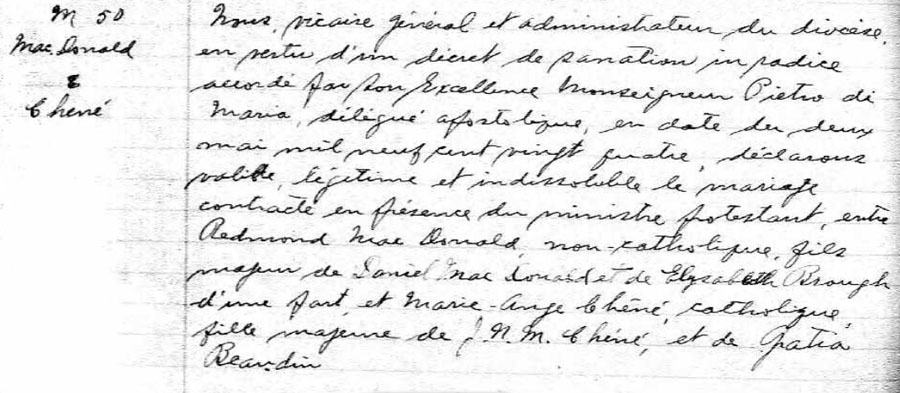 M 50
Mac Donald
&
Chené
Nous, vicaire général et administrateur du diocèse,
en vertu d'un décret de sanation in radice
accordé par Son Excellence Monseigneur Pietro di
Maria, délégué apostolique, en date du deux
mai mil neuf cent vingt quatre, déclarons
valide, légitime et indissoluble le mariage
contracté en présence du ministre protestant, entre
Redmond Mac Donald, non-catholique, fils
majeur de Daniel Mac Donald et de Elysabeth Brough
d'une part, et Marie-Ange Chéné, catholique,
fille majeure de J. N. M. Chéné, et de Gratia
Beaudin